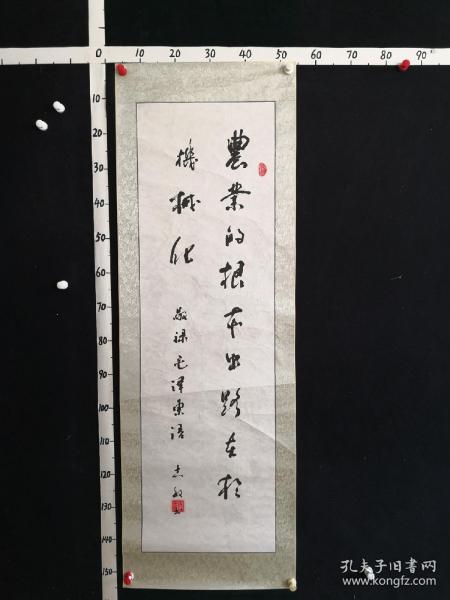 農業的根本出路在於
機械化
敬録毛澤東語 志敏书
0 10 20 30 40 50 60 70 80 90
10
20
30
40
50
60
70
80
90
100
110
120
130
140
150
孔夫子旧书网
www.kongfz.com